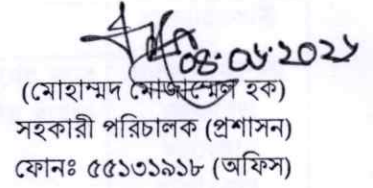 ০৪.০৬.২০২৬
(মোহাম্মদ মোজাম্মেল হক)
সহকারী পরিচালক (প্রশাসন)
ফোনঃ ৫৫১৩১৯১৮ (অফিস)